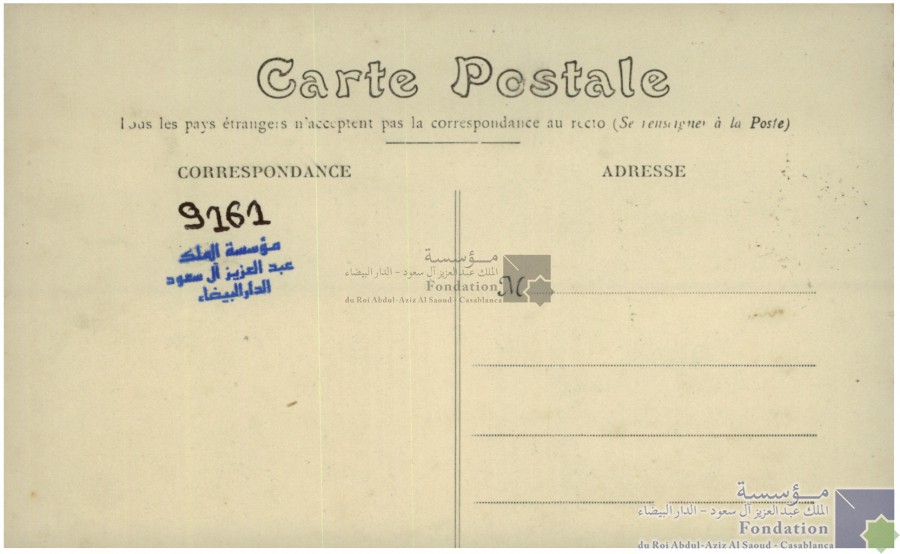 Carte Postale
Tous les pays étrangers n'acceptent pas la correspondance au recto (Se renseigner à la Poste)
CORRESPONDANCE
ADRESSE
9161
مؤسسة الملك
عبد العزيز آل سعود
الدار البيضاء
مؤسسة
الملك عبد العزيز آل سعود - الدار البيضاء
Fondation
du Roi Abdul-Aziz Al Saoud - Casablanca
M
مؤسسة
الملك عبد العزيز آل سعود - الدار البيضاء
Fondation
du Roi Abdul-Aziz Al Saoud - Casablanca